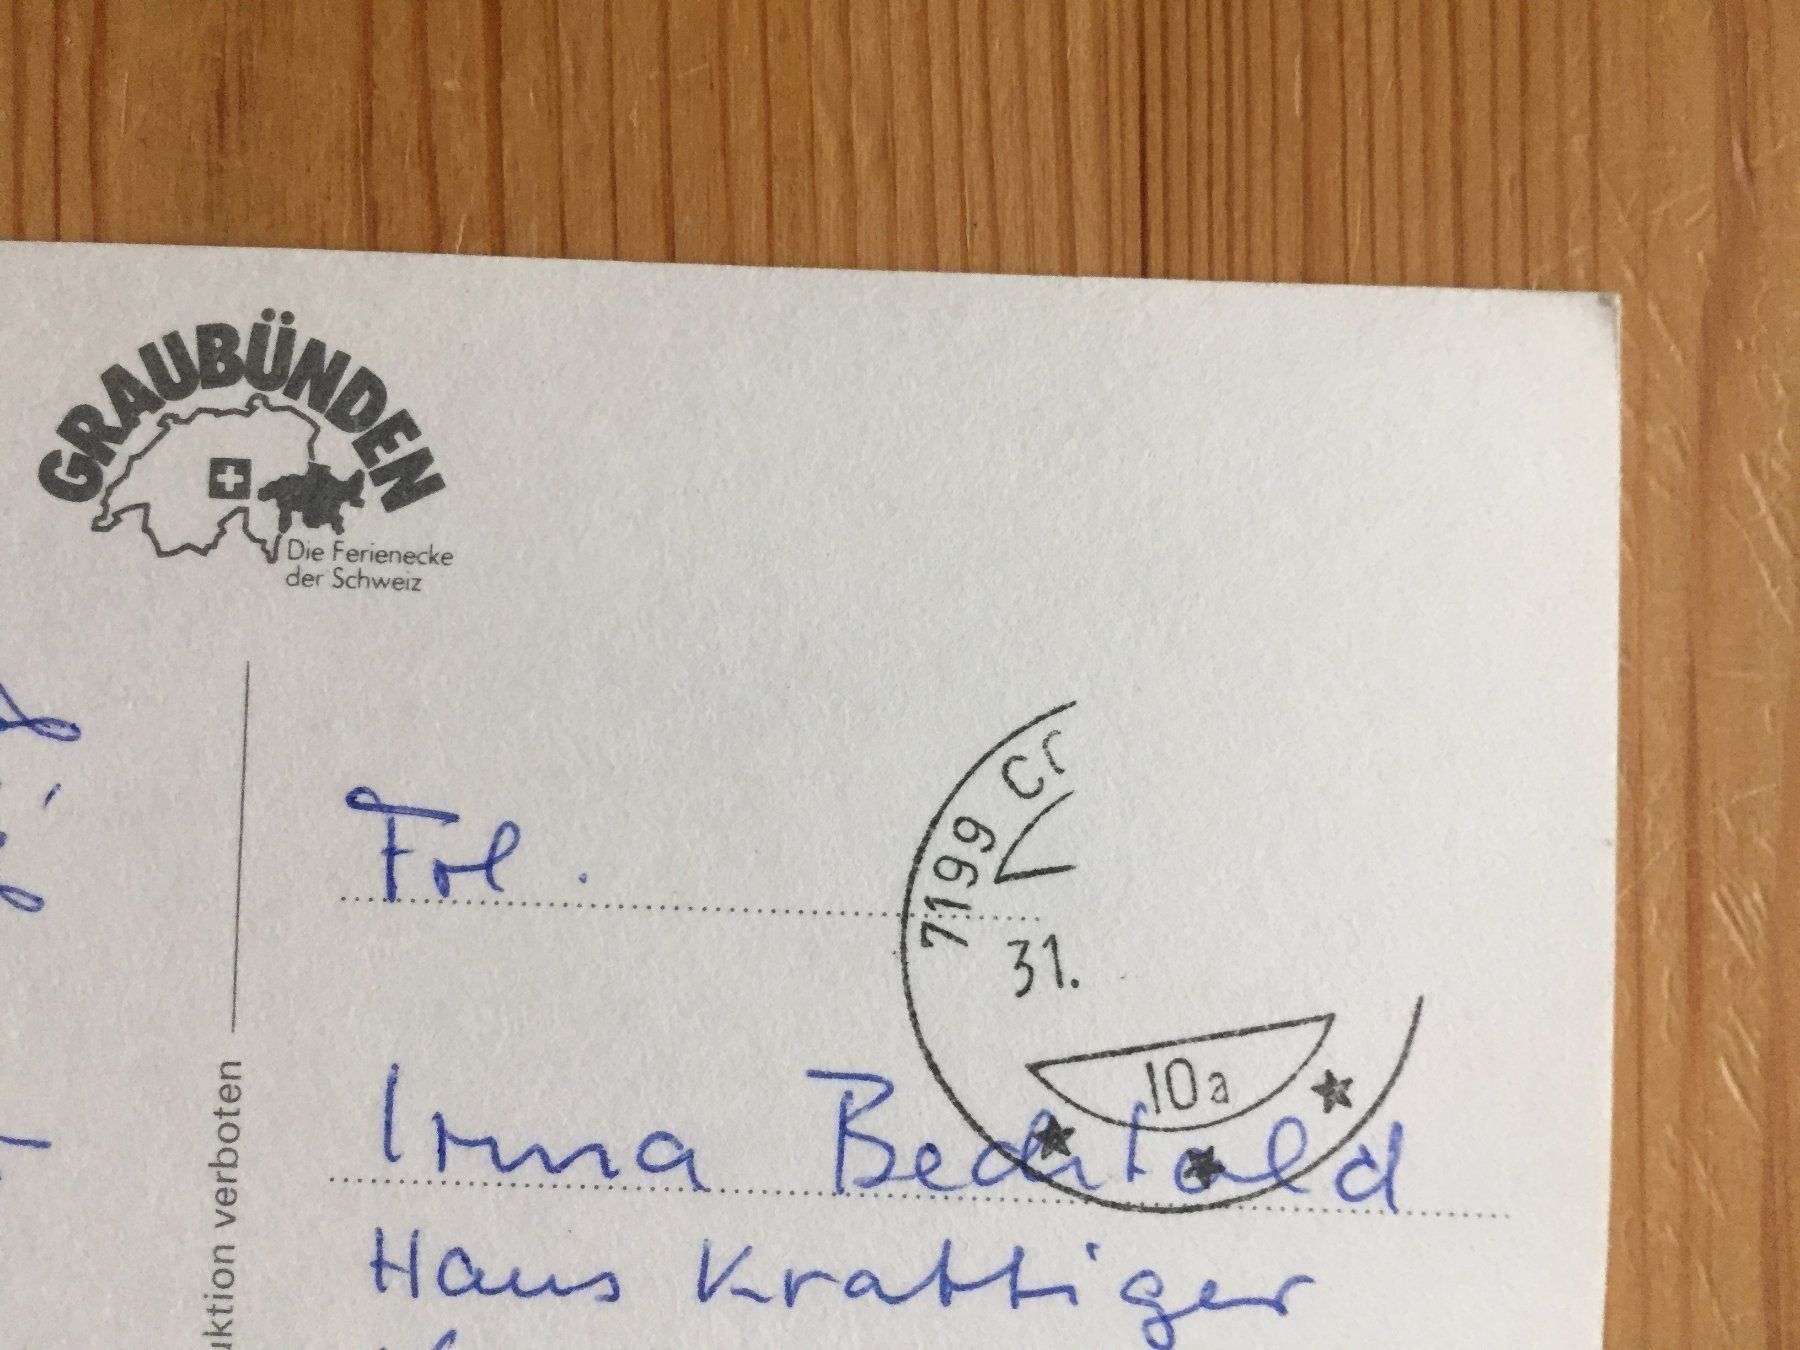 GRAUBÜNDEN
Die Ferienecke
der Schweiz
7199
31.
10a
Frl.
Irma Bechtold
Haus Krattiger
uktion verboten